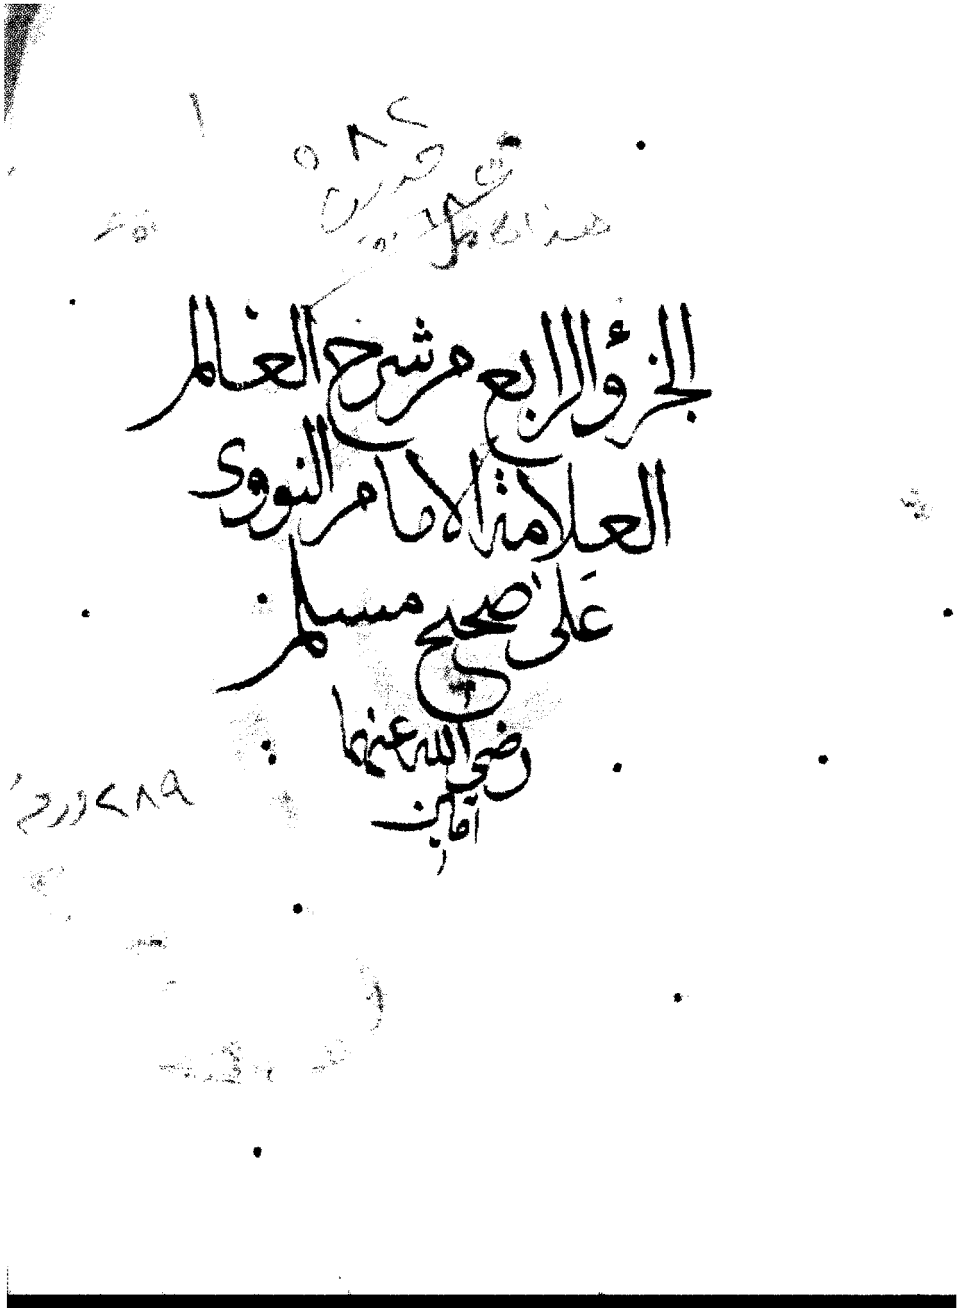 ٥٨٢
الجزؤ الرابع من شرح العالم
العلامة الامام النووى
على صحيح مسلم
رضي الله عنهما
آمين
٢٨٩ ورم